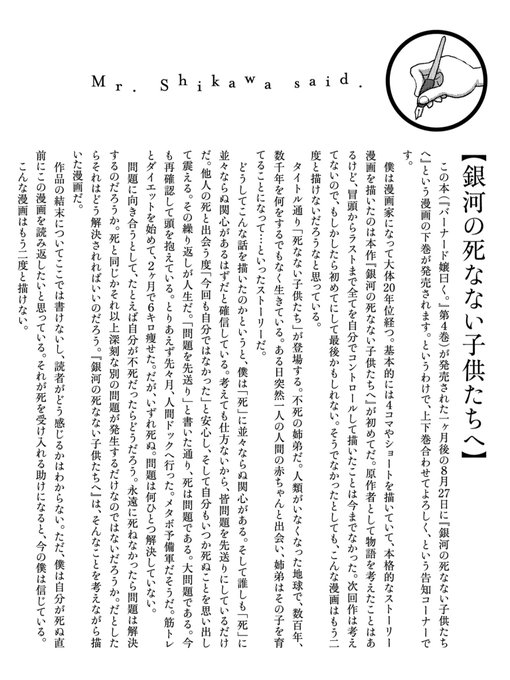 Mr. Shikawa said.
【銀河の死なない子供たちへ】
この本(『バーナード嬢曰く。』第4巻)が発売された一ヶ月後の8月27日に『銀河の死なない子供たち
へ』という漫画の下巻が発売されます。というわけで、上下巻合わせてよろしく、という告知コーナーで
す。
僕は漫画家になって大体20年位経つ。基本的には4コマやショートを描いていて、本格的なストーリー
漫画を描いたのは本作『銀河の死なない子供たちへ』が初めてだ。原作者として物語を考えたことはあ
るけど、冒頭からラストまで全てを自分でコントロールして描いたことは今までなかった。次回作は考え
てないので、もしかしたら初めてにして最後かもしれない。そうでなかったとしても、こんな漫画はもう二
度と描けないだろうなと思っている。
タイトル通り「死なない子供たち」が登場する。不死の姉弟だ。人類がいなくなった地球で、数百年、
数千年を何をするでもなく生きている。ある日突然一人の人間の赤ちゃんと出会い、姉弟はその子を育
てることになって…といったストーリーだ。
どうしてこんな話を描いたのかというと、僕は「死」に並々ならぬ関心がある。そして誰しも「死」に
並々ならぬ関心があるはずだと確信している。考えても仕方ないから、皆問題を先送りにしているだけ
だ。他人の死と出会う度、「今回も自分ではなかった」と安心し、そして自分もいつか死ぬことを思い出し
て震える。その繰り返しが人生だ。「問題を先送り」と書いた通り、死は問題である。大問題である。今
も再確認して頭を抱えている。とりあえず先々月、人間ドックへ行った。メタボ予備軍だそうだ。筋トレ
とダイエットを始めて、2ヶ月で6キロ痩せた。だが、いずれ死ぬ。問題は何ひとつ解決していない。
問題に向き合うとして、たとえば自分が不死だったらどうだろう。永遠に死ねなかったら問題は解決
するのだろうか。死と同じかそれ以上深刻な別の問題が発生するだけなのではないだろうか。だとした
らそれはどう解決されればいいのだろう。『銀河の死なない子供たちへ』は、そんなことを考えながら描
いた漫画だ。
作品の結末についてここでは書けないし、読者がどう感じるかはわからない。ただ、僕は自分が死ぬ直
前にこの漫画を読み返したいと思っている。それが死を受け入れる助けになると、今の僕は信じている。
こんな漫画はもう二度と描けない。